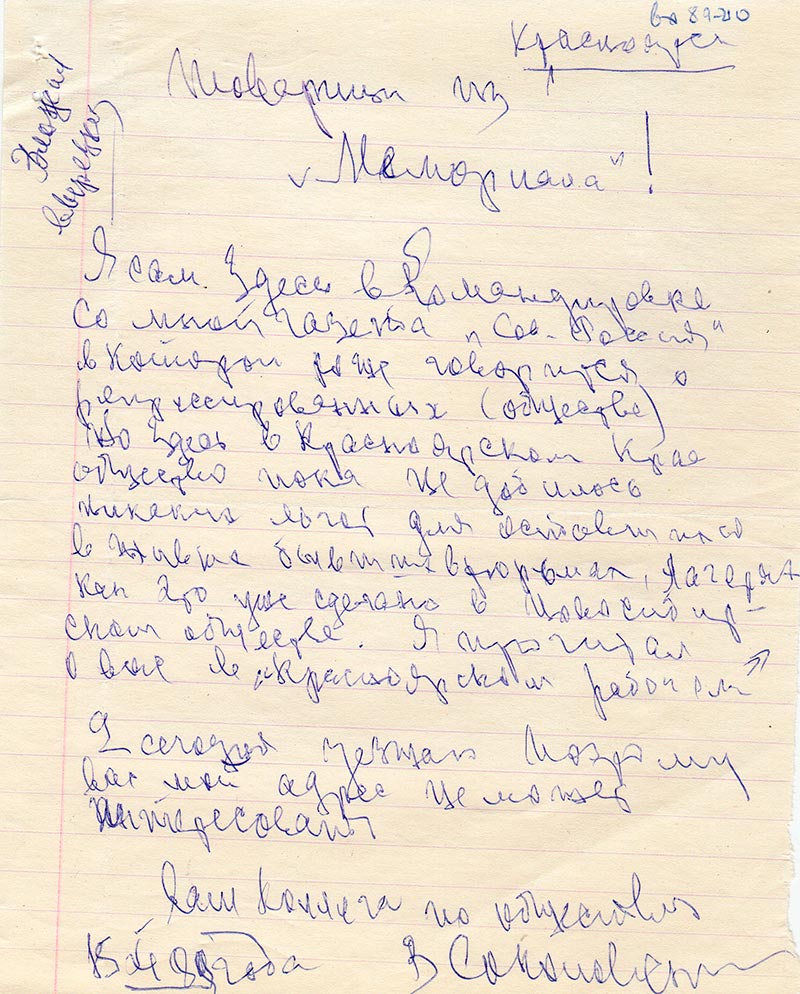 вх 89-210
Красноярск
Товарищи из
"Мемориала"!
Я сам здесь в командировке
со мной газета "Сов. Россия"
в которой тоже говорится о
репрессированных (обществе)
Но здесь в Красноярском крае
общество пока не добилось
никаких льгот для оставшихся
в живых бывших в тюрьмах, лагерях
как это уже сделано в Новосибир-
ском обществе. Я прочитал
о вас в "Красноярском рабочем"
Я сегодня уезжаю поэтому
вас мой адрес не может
интересовать
Ваш коллега по обществу
89 года В Соколов